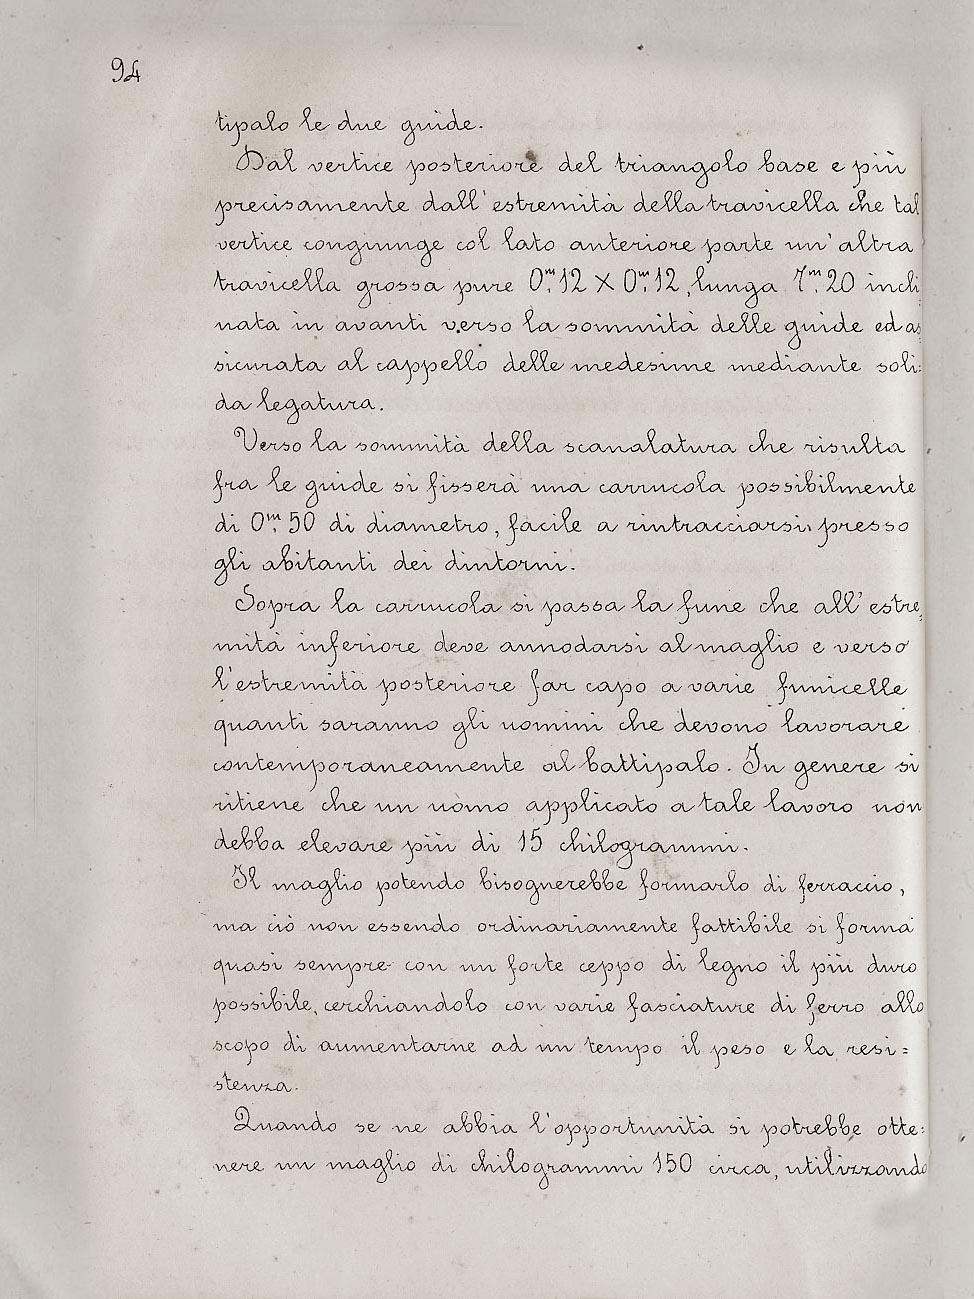 94
tipalo le due guide.
Dal vertice posteriore del triangolo base e più
precisamente dall'estremità della travicella che tal
vertice congiunge col lato anteriore parte un'altra
travicella grossa pure 0.ᵐ12 × 0.ᵐ12, lunga 7.ᵐ20 incli
nata in avanti verso la sommità delle guide ed as
sicurata al cappello delle medesime mediante soli:
da legatura.
Verso la sommità della scanalatura che risulta
fra le guide si fisserà una carrucola possibilmente
di 0.ᵐ50 di diametro, facile a rintracciarsi presso
gli abitanti dei dintorni.
Sopra la carrucola si passa la fune che all'estre:
mità inferiore deve annodarsi al maglio e verso
l'estremità posteriore far capo a varie funicelle
quanti saranno gli uomini che devono lavorare
contemporaneamente al battipalo. In genere si
ritiene che un uomo applicato a tale lavoro non
debba elevare più di 15 chilogrammi.
Il maglio potendo bisognerebbe formarlo di ferraccio,
ma ciò non essendo ordinariamente fattibile si forma
quasi sempre con un forte ceppo di legno il più duro
possibile, cerchiandolo con varie fasciature di ferro allo
scopo di aumentarne ad un tempo il peso e la resi=
stenza.
Quando se ne abbia l'opportunità si potrebbe otte:
nere un maglio di chilogrammi 150 circa, utilizzando